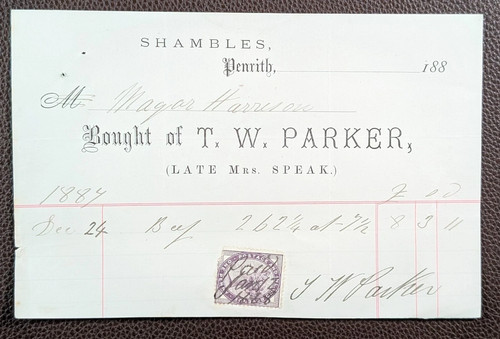 SHAMBLES,
Penrith, 188
Mr Mayor Harrison
Bought of T. W. PARKER,
(LATE MRS. SPEAK.)
1887 £ s d
Dec 24 Beef 262¼ at 7½ 8 3 11
Paid
Jan
1888
T W Parker